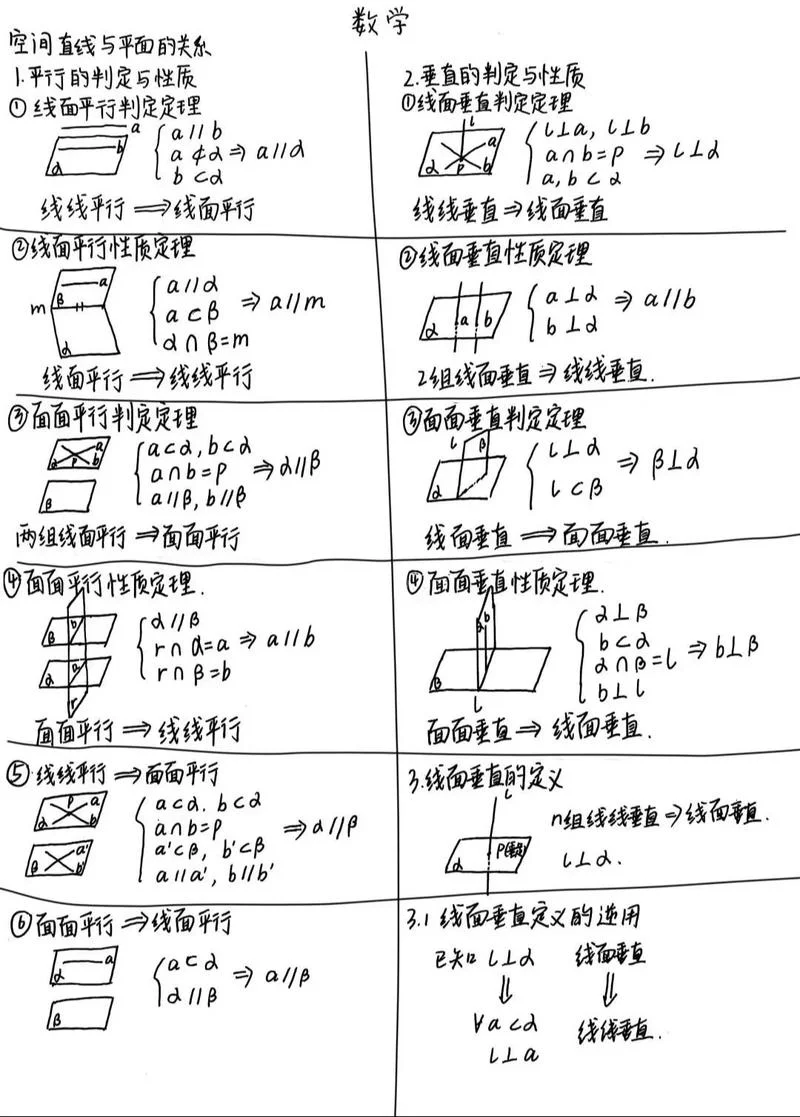 数学
空间直线与平面的关系
1.平行的判定与性质
①线面平行判定定理
a
b
α
a∥b
a⊄α⇒a∥α
b⊂α
线线平行⟹线面平行
②线面平行性质定理
a
β
m
α
a∥α
a⊂β⇒a∥m
α∩β=m
线面平行⟹线线平行
③面面平行判定定理
α P a b
β
a⊂α,b⊂α
a∩b=P⇒α∥β
a∥β,b∥β
两组线面平行⟹面面平行
④面面平行性质定理.
β b
α a
r
α∥β
r∩α=a⇒a∥b
r∩β=b
面面平行⟹线线平行
⑤线线平行⟹面面平行
α P a b
β a' b'
a⊂α.b⊂α
a∩b=P
a'⊂β,b'⊂β
a∥a',b∥b'
⇒α∥β
⑥面面平行⟹线面平行
α a
β
a⊂α
α∥β
⇒a∥β
2.垂直的判定与性质
①线面垂直判定定理
l
α P a b
l⊥a,l⊥b
a∩b=P⇒l⊥α
a,b⊂α
线线垂直⇒线面垂直
②线面垂直性质定理
α a b
a⊥α
b⊥α
⇒a∥b
2组线面垂直⇒线线垂直.
③面面垂直判定定理
l β
α
l⊥α
l⊂β
⇒β⊥α
线面垂直⟹面面垂直.
④面面垂直性质定理.
α b
β
l
α⊥β
b⊂α
α∩β=l⇒b⊥β
b⊥l
面面垂直⟹线面垂直.
3.线面垂直的定义
l
α P(垂足)
n组线线垂直⇒线面垂直.
l⊥α.
3.1线面垂直定义的逆用
已知l⊥α 线面垂直
⇓ ⇓
∀a⊂α 线线垂直.
l⊥a